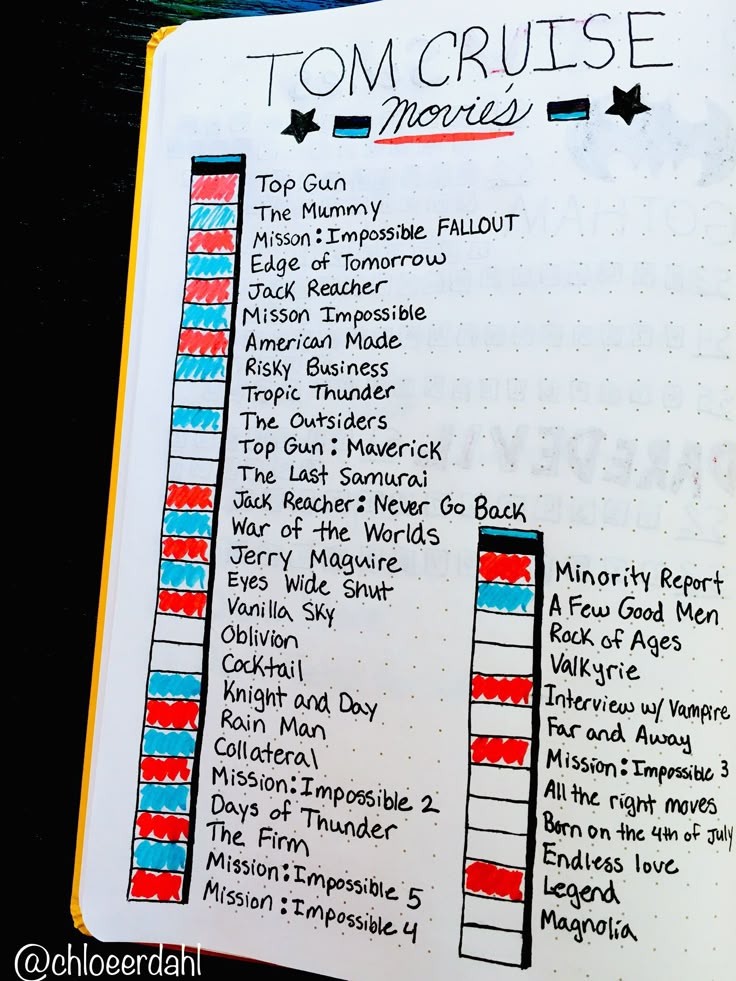 TOM CRUISE
Movies
Top Gun
The Mummy
Misson: Impossible FALLOUT
Edge of Tomorrow
Jack Reacher
Misson Impossible
American Made
Risky Business
Tropic Thunder
The Outsiders
Top Gun: Maverick
The Last Samurai
Jack Reacher: Never Go Back
War of the Worlds
Jerry Maguire
Eyes Wide Shut
Vanilla Sky
Oblivion
Cocktail
Knight and Day
Rain Man
Collateral
Mission: Impossible 2
Days of Thunder
The Firm
Mission: Impossible 5
Mission: Impossible 4
Minority Report
A Few Good Men
Rock of Ages
Valkyrie
Interview w/ Vampire
Far and Away
Mission: Impossible 3
All the right moves
Born on the 4th of July
Endless love
Legend
Magnolia
@chloeerdahl